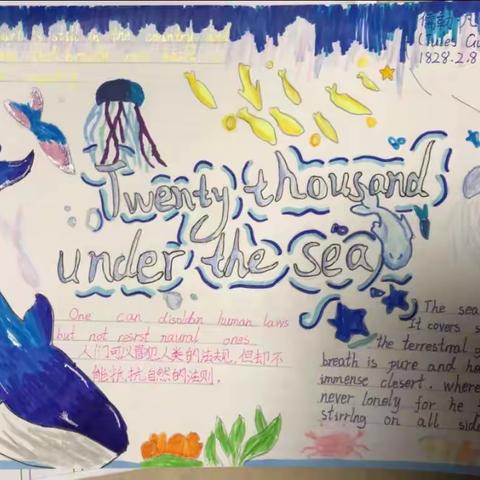 儒勒·凡
(Jules G
1828.2.8
Twenty thousand
under the sea
One can disoldan human laws
but not resrst naural ones
人们可以冒犯人类的法规,但却不
能抵抗自然的法则。
The sea
It covers s
the terrestrial g
breath is pure and he
immense clesert, where
never lonely for he
stirring on all side